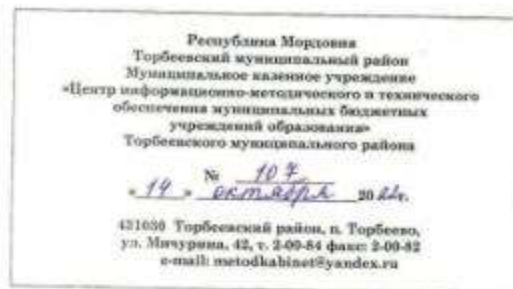 Республика Мордовия
Торбеевский муниципальный район
Муниципальное казенное учреждение
«Центр информационно-методического и технического
обеспечения муниципальных бюджетных
учреждений образования»
Торбеевского муниципального района
№ 107
« 14 » октября 2022г.
431030 Торбеевский район, п. Торбеево,
ул. Мичурина, 42, т. 2-00-84 факс: 2-00-82
e-mail: metodkabinet@yandex.ru